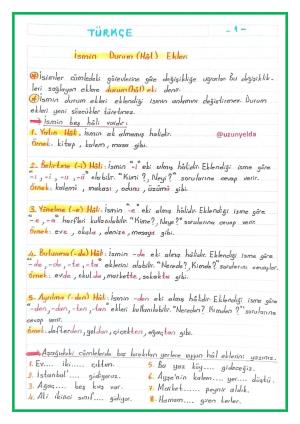 TÜRKÇE
- 1 -
İsmin Durum (Hâl) Ekleri
İsimler cümledeki görevlerine göre değişikliğe uğrarlar. Bu değişiklik-
leri sağlayan eklere durum (hâl) eki denir.
İsmin durum ekleri eklendiği ismin anlamını değiştirmez. Durum
ekleri yeni sözcükler türetmez.
İsmin beş hâli vardır:
1. Yalın Hâl: İsmin ek almamış halidir.
@uzunyelda
Örnek: kitap, kalem, masa gibi.
2. Belirtme (-i) Hâli: İsmin "-i" eki almış hâlidir. Eklendiği isme göre
"-ı, -i, -u, -ü" olabilir. "Kimi?, Neyi?" sorularına cevap verir.
Örnek: kalemi, makası, odunu, üzümü gibi.
3. Yönelme (-e) Hâli: İsmin "-e" eki almış hâlidir. Eklendiği isme göre
"-e, -a" harfleri kullanılabilir. "Kime?, Neye?" sorularına cevap verir.
Örnek: eve, okula, denize, masaya gibi.
4. Bulunma (-de) Hâli: İsmin -de eki almış hâlidir. Eklendiği isme göre
"-de, -da, -te, -ta" eklerini alabilir. "Nerede?, Kimde?" sorularını cevaplar.
Örnek: evde, okulda, markette, sokakta gibi.
5. Ayrılma (-den) Hâli: İsmin -den eki almış hâlidir. Eklendiği isme göre
"-den, -dan, -ten, -tan" ekleri kullanılabilir. "Nereden? Kimden?" sorularına
cevap verir.
Örnek: defterden, yoldan, çiçekten, ağaçtan gibi.
Aşağıdaki cümlelerde boş bırakılan yerlere uygun hâl eklerini yazınız.
1. Ev.... iki .... çıktım.
2. İstanbul'.... gidiyoruz.
3. Ağaç.... beş kuş var.
4. Ali ikinci sınıf.... gidiyor.
5. Bu yaz köy.... gideceğiz.
6. Ayşe'nin kalem.... yer.... düştü.
7. Market.... peynir aldık.
8. Hamam.... giren terler.